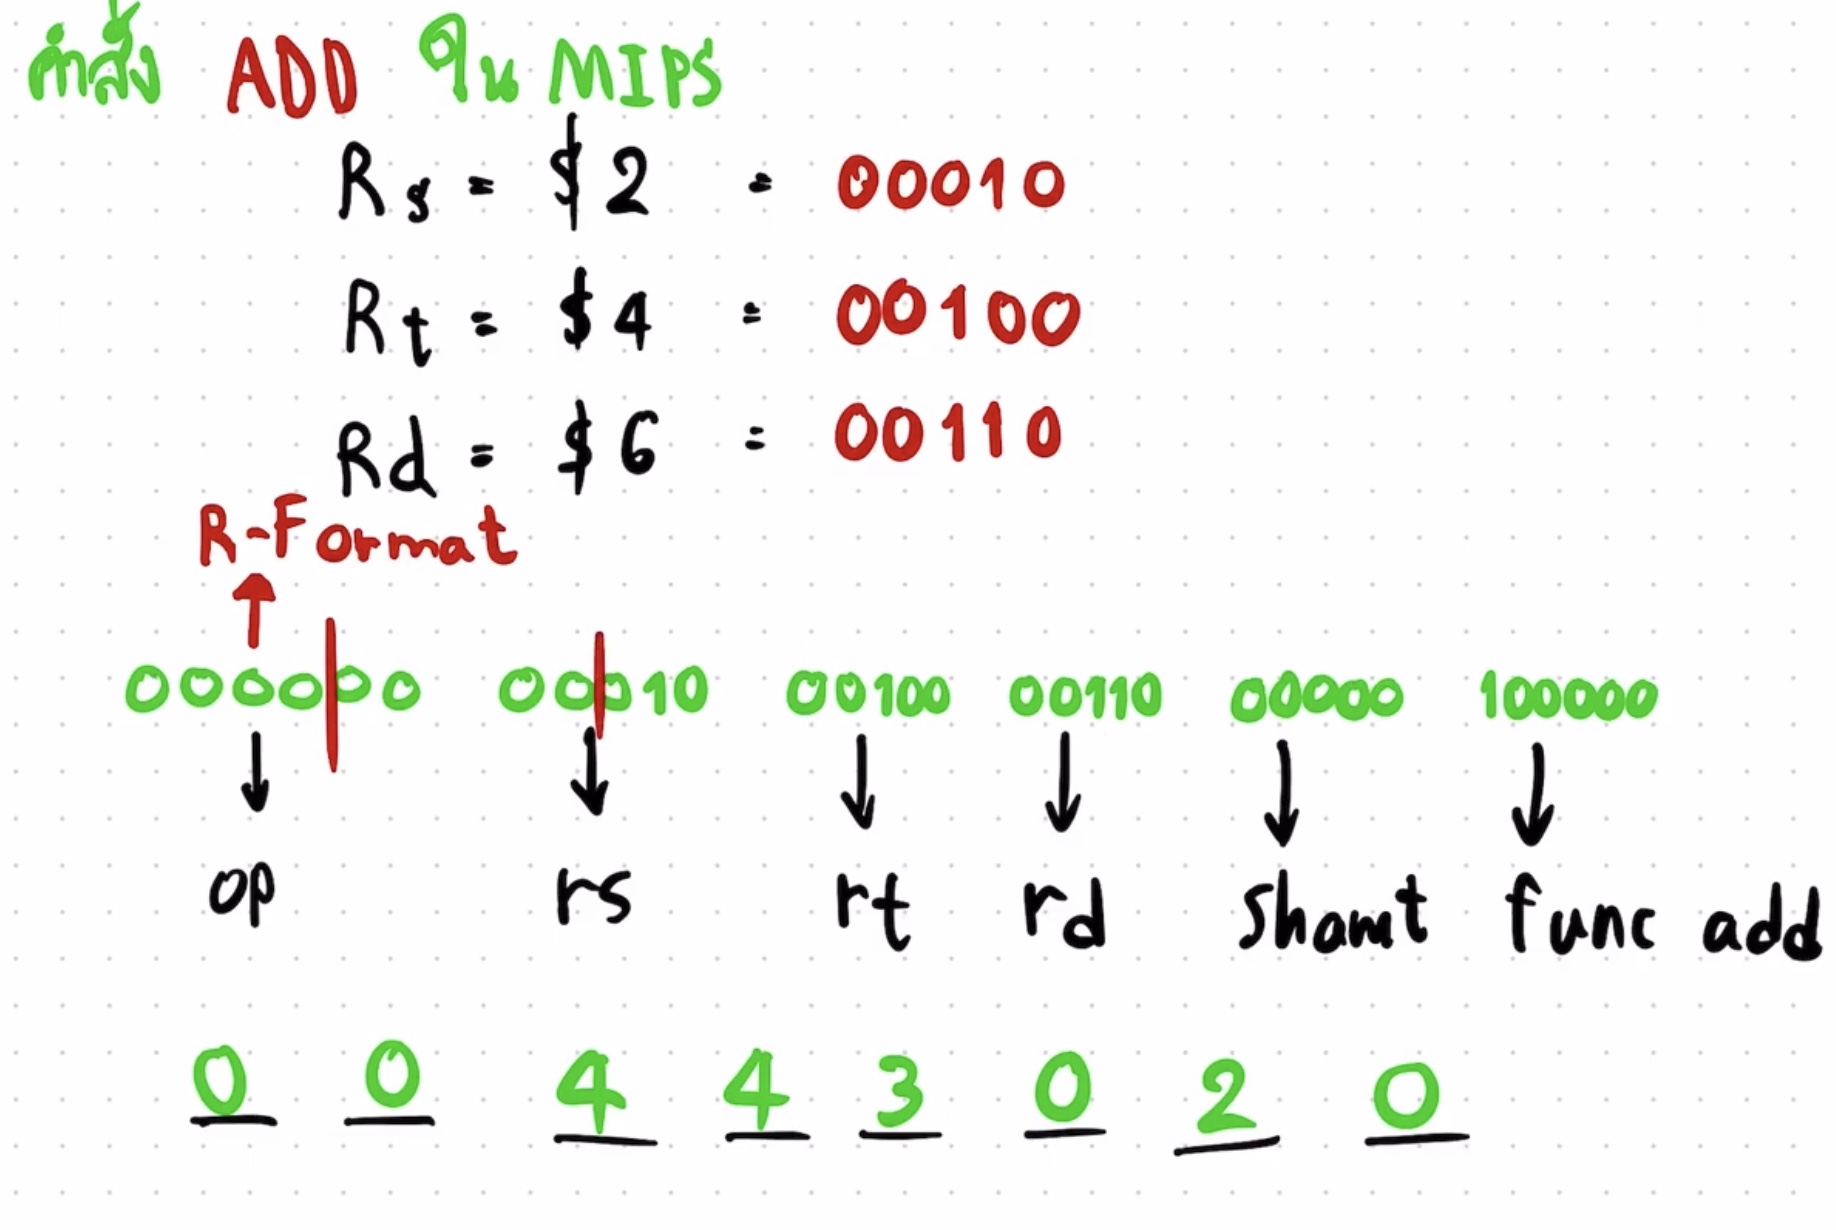 คำสั่ง ADD ใน MIPS
Rs = $2 = 00010
Rt = $4 = 00100
Rd = $6 = 00110
R-Format
000000 00010 00100 00110 00000 100000
op rs rt rd shamt func add
0 0 4 4 3 0 2 0